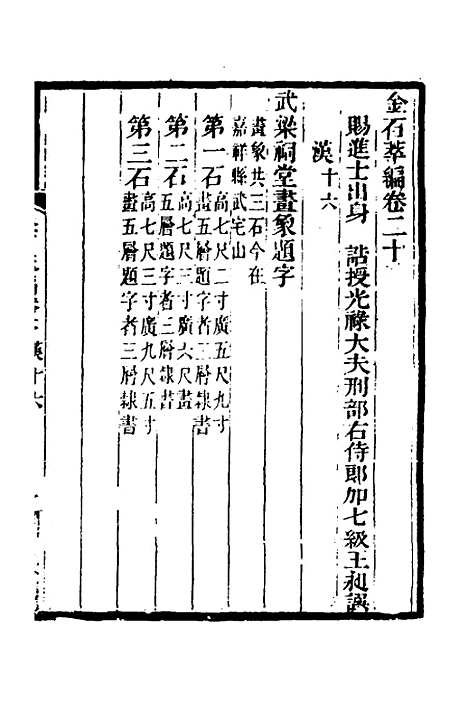 金石萃編卷二十
賜進士出身 誥授光祿大夫刑部右侍郎加七級王昶譔
漢十六
武梁祠堂畫象題字
畫象共三石今在
嘉祥縣武宅山
第一石高七尺二寸廣五尺九寸
畫五層題字者三層隸書
第二石高七尺三寸廣六尺畫
五層題字者三層隸書
第三石高七尺三寸廣九尺五寸
畫五層題字者三層隸書
漢十六